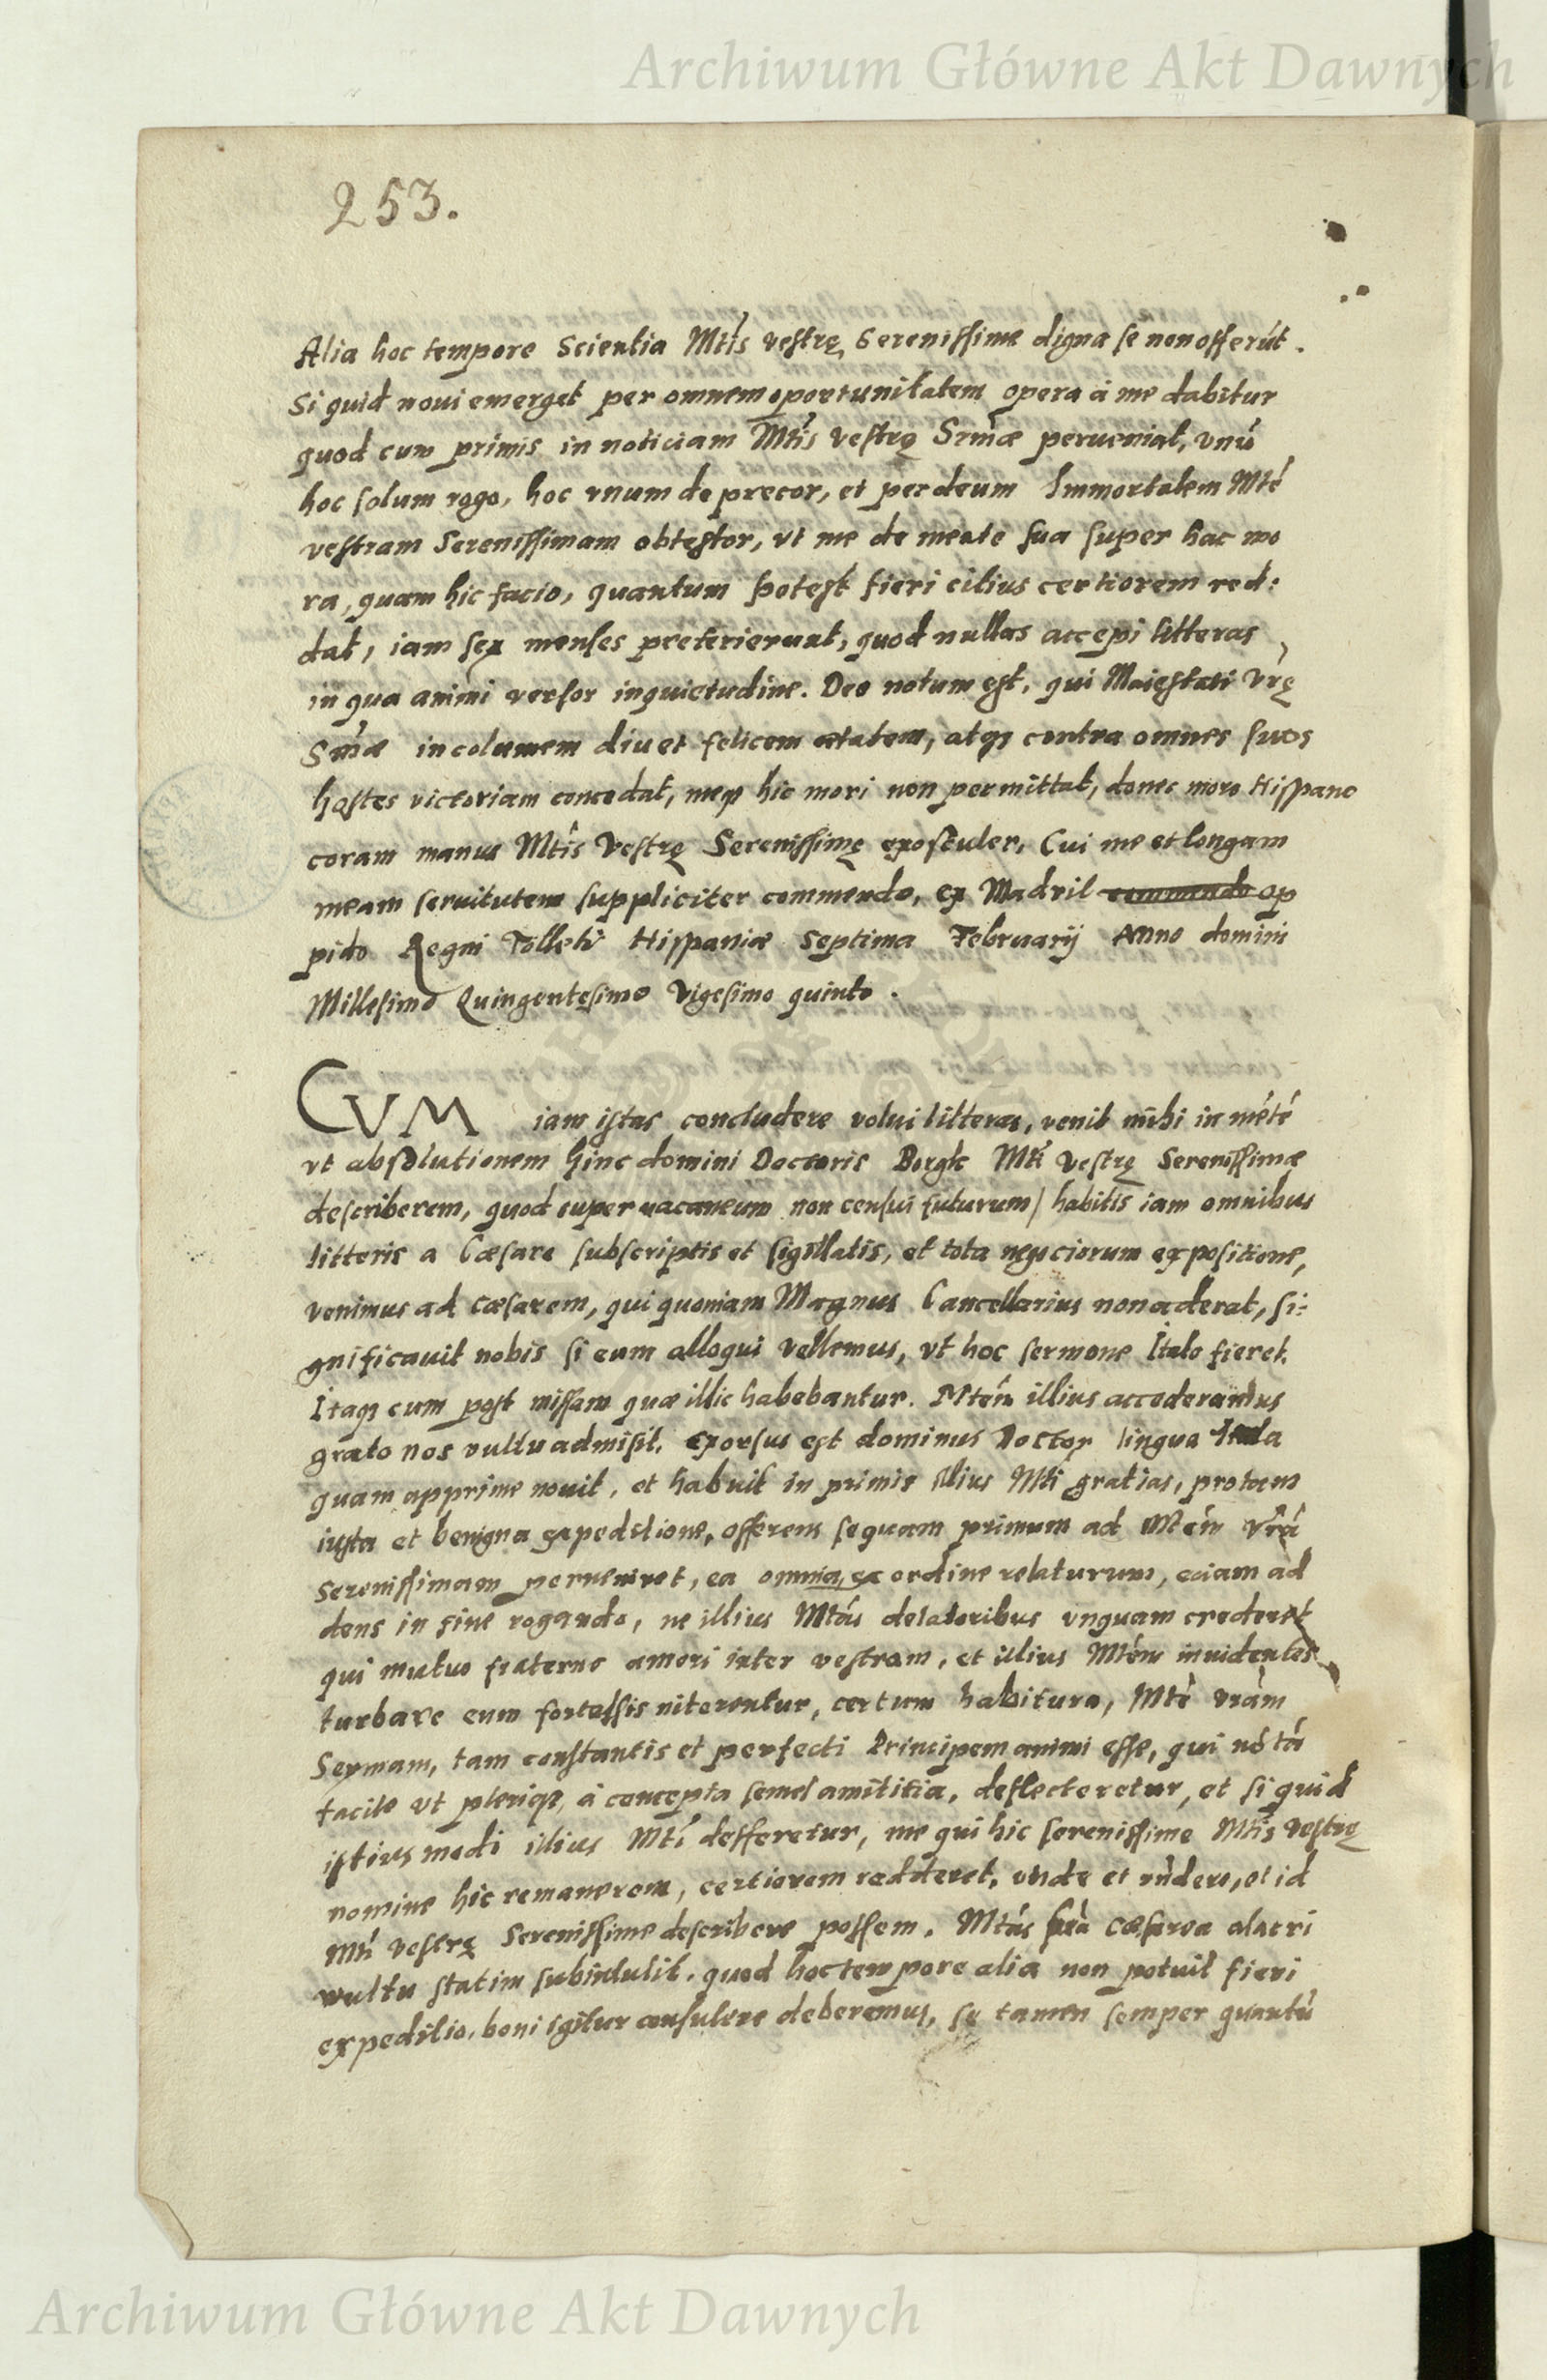 Archiwum Główne Akt Dawnych
253.
Alia hoc tempore Scientia Mtis vestrę Serenissime digna se non offerút.
Si quid noui emerget per omnem oportunitatem opera à me dabitur
quod cum primis in noticiam Mtis vestrę Srmæ perueniat, vnú
hoc solum rogo, hoc vnum deprecor, et per deum Immortalem Mté
vestram Serenissimam obtestor, vt me de mente sua super hac mo
ra, quam hic facio, quantum potest fieri citius certiorem red:
dat, iam sex menses preterierunt, quod nullas accepi litteras,
in qua animi versor inquietudine. Deo notum est, qui Maiestati Vrę
Smæ incolumem diu et felicem ætatem, atq3 contra omnes suos
hostes victoriam concedat, meq3 hic mori non permittat, donec more Hispano
coram manus Mtis Vestrę Serenissimę exosculer, Cui me et longam
meam seruitutem suppliciter commendo, ex Madril commendo op
pido Regni Tolleti Hispaniæ Septima Februarij Anno domini
Millesimo Quingentesimo Vigesimo quinto.
CVM iam istas concludere volui litteras, venit mihi in mété
vt absolutionem hinc domini Doctoris Borgk Mti vestrę Serenissimæ
describerem, quod superuacaneum non censui futurum / habitis iam omnibus
litteris a Cæsare subscriptis et sigillatis, et tota negociorum expositione,
venimus ad Cæsarem, qui quoniam Magnus Cancellarius non aderat, si:
gnificauit nobis si eum alloqui vellemus, vt hoc sermone Italo fieret.
Itaq3 cum post missam quæ illic habebantur. Mtém illius accederamus
grato nos vultu admisit. Exorsus est dominus Doctor lingua Itala
quam apprime nouit, et habuit in primis illius Mti gratias, pro tam
iusta et benigna expeditione, offerens se quam primum ad Mtém Vrá
Serenissimam perueniret, ea omnia ex ordine relaturum, eciam ad
dens in fine rogando, ne illius Mtás delatoribus vnquam crederet
qui mutuo fraterno amori inter vestram, et illius Mtém inuidentes
turbare eum fortassis niterentur, certum habitura, Mté vrám
Seymam, tam constantis et perfecti Principem animi esse, qui nó tá
facile vt pleriq3 à concepta semel amititia, deflecteretur, et si quid
istius modi illius Mti defferetur, me qui hic serenissime Mtis vestrę
nomine hic remanerem, certiorem redderet, vnde et rńdere, et id
Mti vestrę Serenissime describere possem. Mtás Cæsarea alacri
vultu statim subintulit, quod hoc tempore alia non potuit fieri
expeditio, boni igitur consulere deberemus, se tamen semper quantú
Archiwum Główne Akt Dawnych